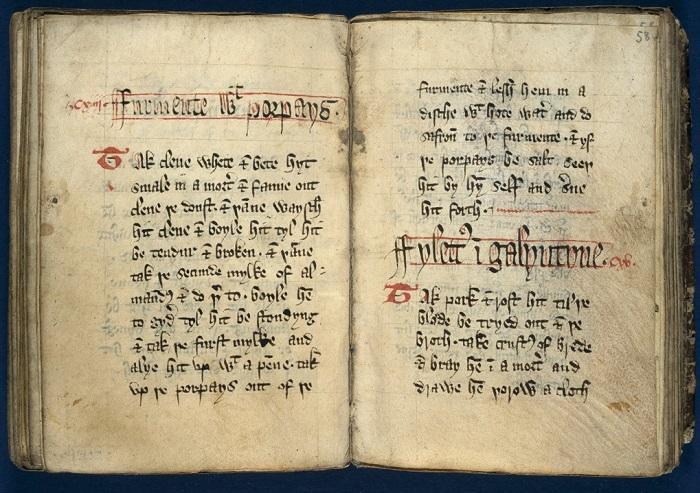 58
.xcxiiij. Furmente wt porpays.
Tak clene whete & bete hyt
smale in a morter & fanne out
clene þe doust. & þanne waysch
hit clene & boyle hit tyl hit
be tendur & broken. & þanne
tak þe secunde mylke of al-
mandys & do þer to. boyle hem
to gyder tyl hit be stondyng
& tak þe furst mylke and
alye hit up wt a penne. tak
up þe porpays out of þe
furmente & lesch hem in a
dische wt hote water and do
safron to þe furmente. & yf
þe porpays be salt. seeþ
hit by hym self and serue
hit forth.
Fylettys i galyntyne. cxv.
Tak pork & rost hit til þe
blode be tryed out & þe
broth. take crustys of brede
& bray hem i a morter and
drawe hem þorow a cloth